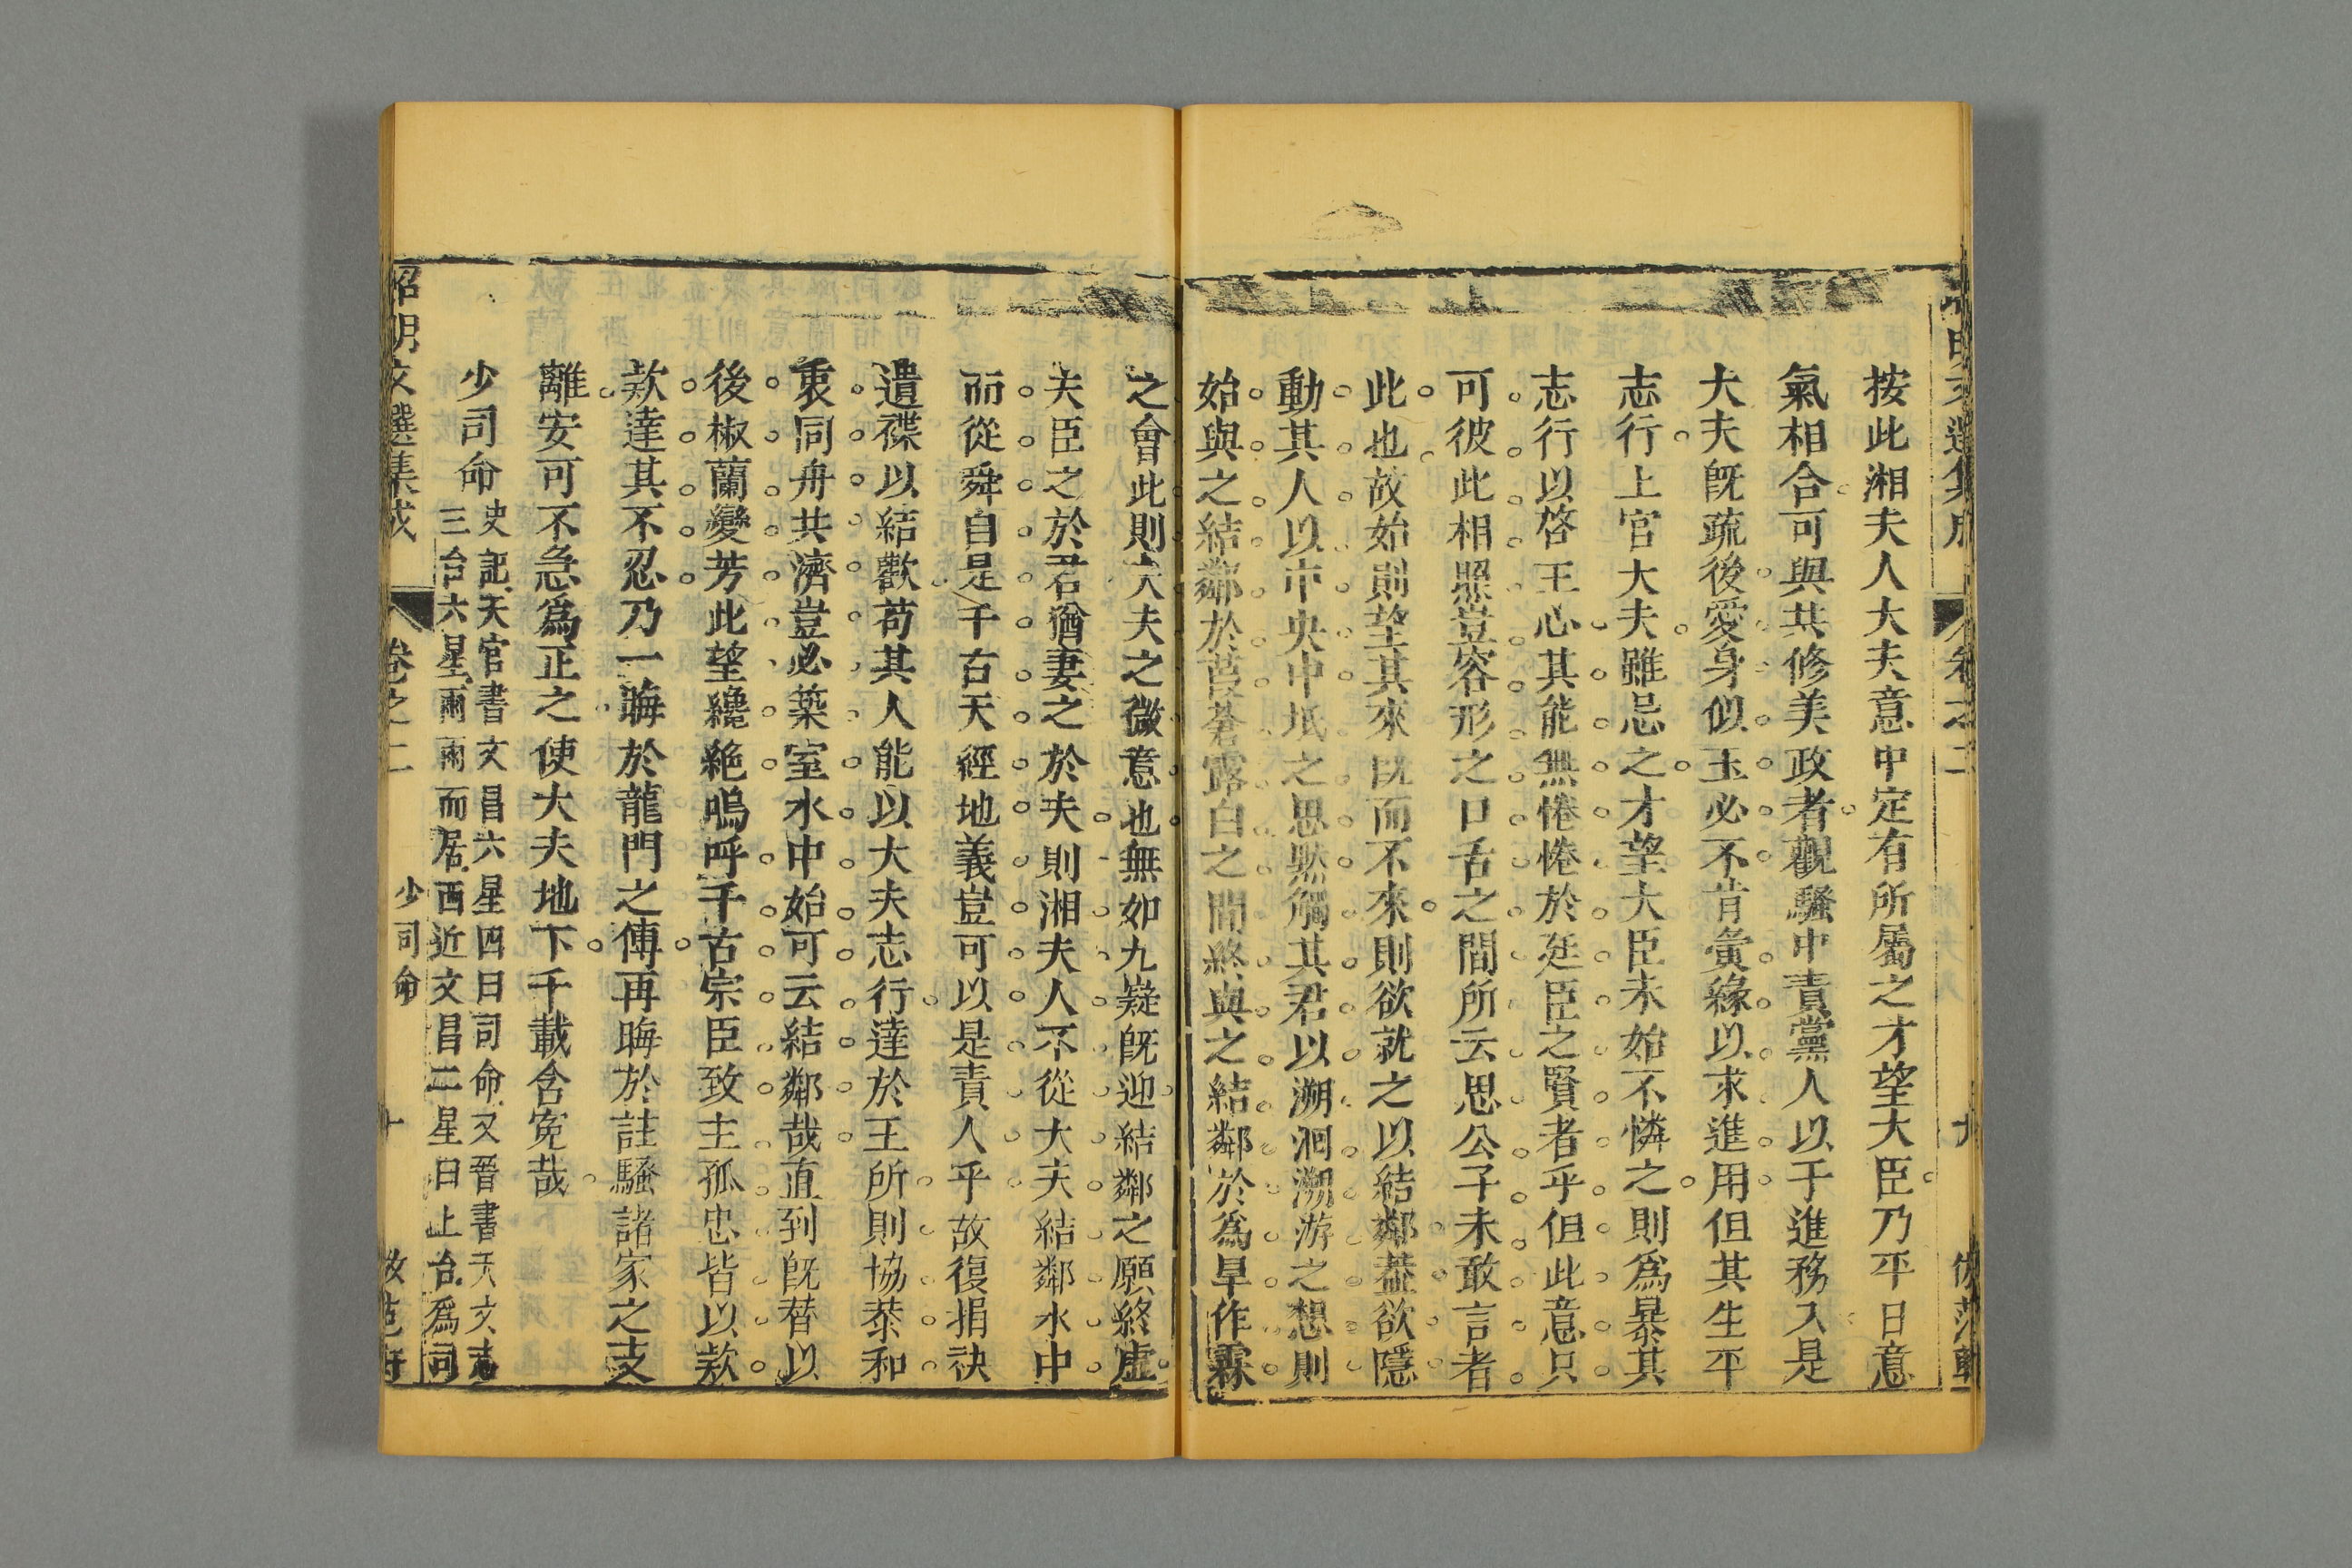 按此湘夫人大夫意中定有所屬之才望大臣乃平日意
氣相合可與共修美政者觀騷中責黨人以于進務入是
大夫旣疏後愛身似玉必不肯夤緣以求進用但其生平
志行上官大夫雖忌之才望大臣未始不憐之則爲暴其
志行以啓王心其能無惓惓於廷臣之賢者乎但此意只
可彼此相照豈容形之口舌之間所云思公子未敢言者
此也故始則望其來旣而不來則欲就之以結鄰葢欲隱
動其人以中央中坻之思默觸其君以溯洄溯游之想則
始與之結鄰於葭蒼露白之間終與之結鄰於爲旱作霖
之會此則大夫之微意也無如九嶷旣迎結鄰之願終虛
夫臣之於君猶妻之於夫則湘夫人不從大夫結鄰水中
而從舜自是千古天經地義豈可以是責人乎故復捐袂
遺褋以結歡苟其人能以大夫志行達於王所則協恭和
衷同舟共濟豈必築室水中始可云結鄰哉直到旣替以
後椒蘭變芳此望纔絶嗚呼千古宗臣致主孤忠皆以欵
欵達其不忍乃一晦於龍門之傳再晦於註騷諸家之支
離安可不急爲正之使大夫地下千載含寃哉
少司命 史記天官書文昌六星四曰司命又晉書天文志
三台六星兩兩而居西近文昌二星曰上台爲司
昭明文選集成 卷之二 少司命 十